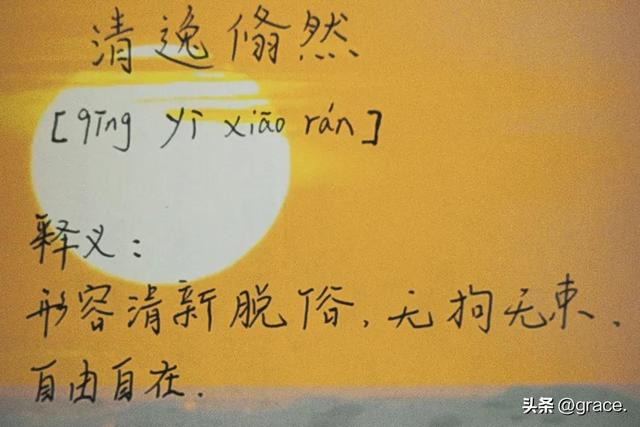 清逸翛然
[qīng yī xiāo rán]
释义：
形容清新脱俗，无拘无束、
自由自在.
头条 @grace.